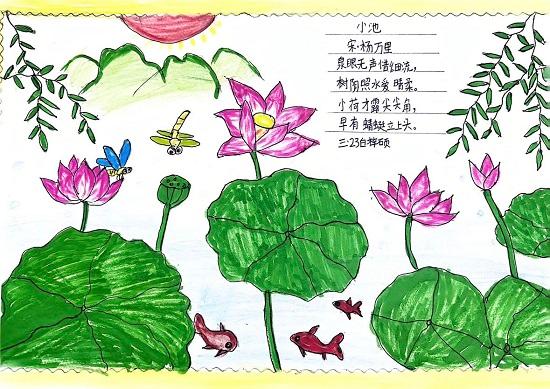 小池
宋·杨万里
泉眼无声惜细流，
树阴照水爱晴柔。
小荷才露尖尖角，
早有蜻蜓立上头。
三·23白梓硕